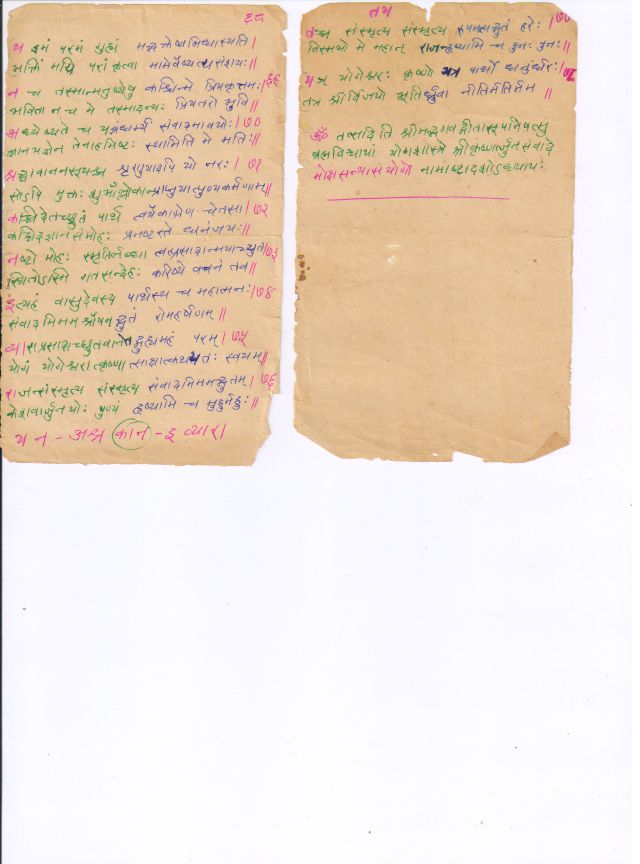 ६८
य इमं परमं गुह्यं मद्भक्तेष्वभिधास्यति|
भक्तिं मयि परां कृत्वा मामेवैष्यत्यसंशयः||
न च तस्मान्मनुष्येषु कश्चिन्मे प्रियकृत्तमः|६९
भविता न च मे तस्मादन्यः प्रियतरो भुवि||
अध्येष्यते च य इमं धर्म्यं संवादमावयोः|७०
ज्ञानयज्ञेन तेनाहमिष्टः स्यामिति मे मतिः||
श्रद्धावाननसूयश्च शृणुयादपि यो नरः|७१
सोऽपि मुक्तः शुभाँल्लोकान्प्राप्नुयात्पुण्यकर्मणाम्||
कच्चिदेतच्छ्रुतं पार्थ त्वयैकाग्रेण चेतसा|७२
कच्चिदज्ञानसंमोहः प्रनष्टस्ते धनंजयः||
नष्टो मोहः स्मृतिर्लब्धा त्वत्प्रसादान्मयाच्युत|७३
स्थितोऽस्मि गतसन्देहः करिष्ये वचनं तव||
इत्यहं वासुदेवस्य पार्थस्य च महात्मनः|७४
संवादमिममश्रौषमद्भुतं रोमहर्षणम्||
व्यासप्रसादाच्छ्रुतवानेतद्गुह्यमहं परम्|७५
योगं योगेश्वरात्कृष्णात्साक्षात्कथयतः स्वयम्||
राजन्संस्मृत्य संस्मृत्य संवादमिममद्भुतम्|७६
केशवार्जुनयोः पुण्यं हृष्यामि च मुहुर्मुहुः||
य न - अश्न कान - इ व्यारा
तय
तच्च संस्मृत्य संस्मृत्य रूपमत्यद्भुतं हरेः|७७
विस्मयो मे महान् राजन्हृष्यामि च पुनः पुनः||
यत्र योगेश्वरः कृष्णो यत्र पार्थो धनुर्धरः|७८
तत्र श्रीर्विजयो भूतिर्ध्रुवा नीतिर्मतिर्मम ||
ॐ तत्सदिति श्रीमद्भगवद्गीतासूपनिषत्सु
ब्रह्मविद्यायां योगशास्त्रे श्रीकृष्णार्जुनसंवादे
मोक्षसन्यासयोगो नामाष्टादशोऽध्यायः